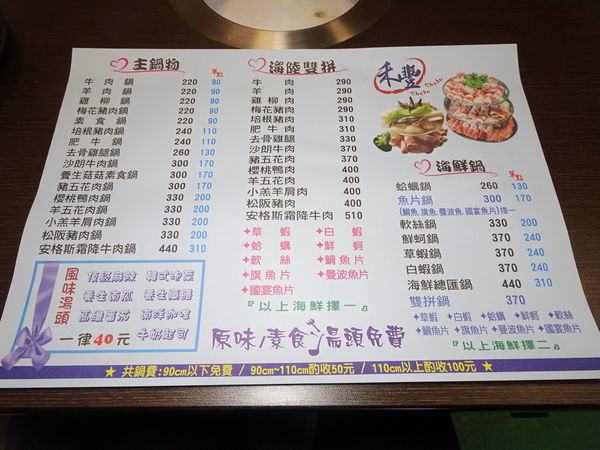 主鍋物 單點
牛肉鍋 220 90
羊肉鍋 220 90
雞柳鍋 220 90
梅花豬肉鍋 220 90
素食鍋 220 90
培根豬肉鍋 240 110
肥牛鍋 240 110
去骨雞腿鍋 260 130
沙朗牛肉鍋 300 170
養生菇菇素食鍋 300 170
豬五花肉鍋 300 170
櫻桃鴨肉鍋 330 200
羊五花肉鍋 330 200
小羔羊肩肉鍋 330 200
松阪豬肉鍋 330 200
安格斯霜降牛肉鍋 440 310
風味湯頭
頂級麻辣 韓式泡菜
養生南瓜 養生藥膳
高纖蕃茄 南洋咖哩
一律40元 牛奶起司
海陸雙拼
牛肉 290
羊肉 290
雞柳肉 290
梅花豬肉 290
培根豬肉 310
肥牛肉 310
去骨雞腿 330
沙朗牛肉 370
豬五花肉 370
櫻桃鴨肉 400
羊五花肉 400
小羔羊肩肉 400
松阪豬肉 400
安格斯霜降牛肉 510
✦草蝦 ✦白蝦
✦蛤蠣 ✦鮮蚵
✦軟絲 ✦鯛魚片
✦旗魚片 ✦曼波魚片
✦國宴魚片
『以上海鮮擇一』
原味/素食湯頭免費
禾豐
Shabu Shabu
海鮮鍋 單點
蛤蠣鍋 260 130
魚片鍋 300 170
(鯛魚.旗魚片.曼波魚.國宴魚片)擇一
軟絲鍋 330 200
鮮蚵鍋 370 240
草蝦鍋 370 240
白蝦鍋 370 240
海鮮總匯鍋 440 310
雙拼鍋 370
✦草蝦 ✦白蝦 ✦蛤蠣 ✦鮮蚵 ✦軟絲
✦鯛魚片 ✦旗魚片 ✦曼波魚片 ✦國宴魚片
『以上海鮮擇二』
★ 共鍋費:90cm以下免費 / 90cm~110cm酌收50元 / 110cm以上酌收100元 ★